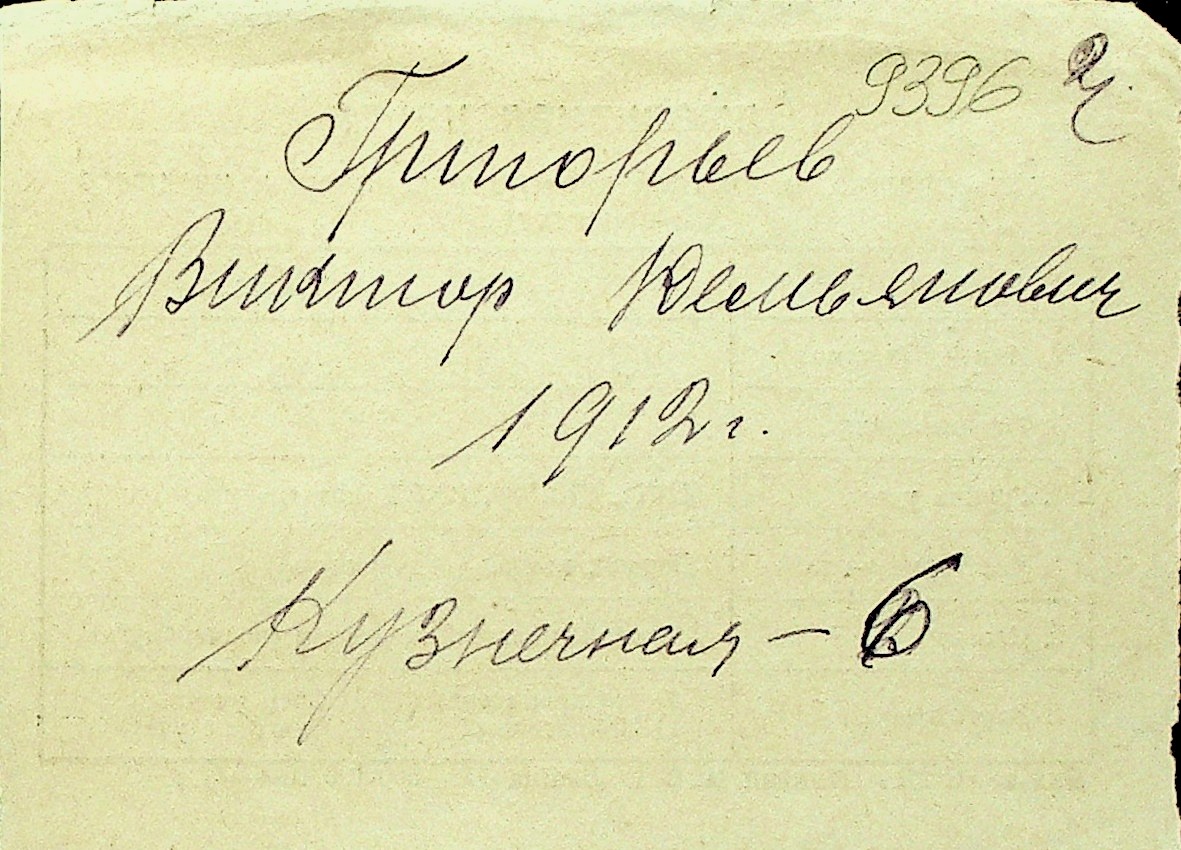 9396
Григорьев
Виктор Демьянович
1912 г.
Кузнечная - 6